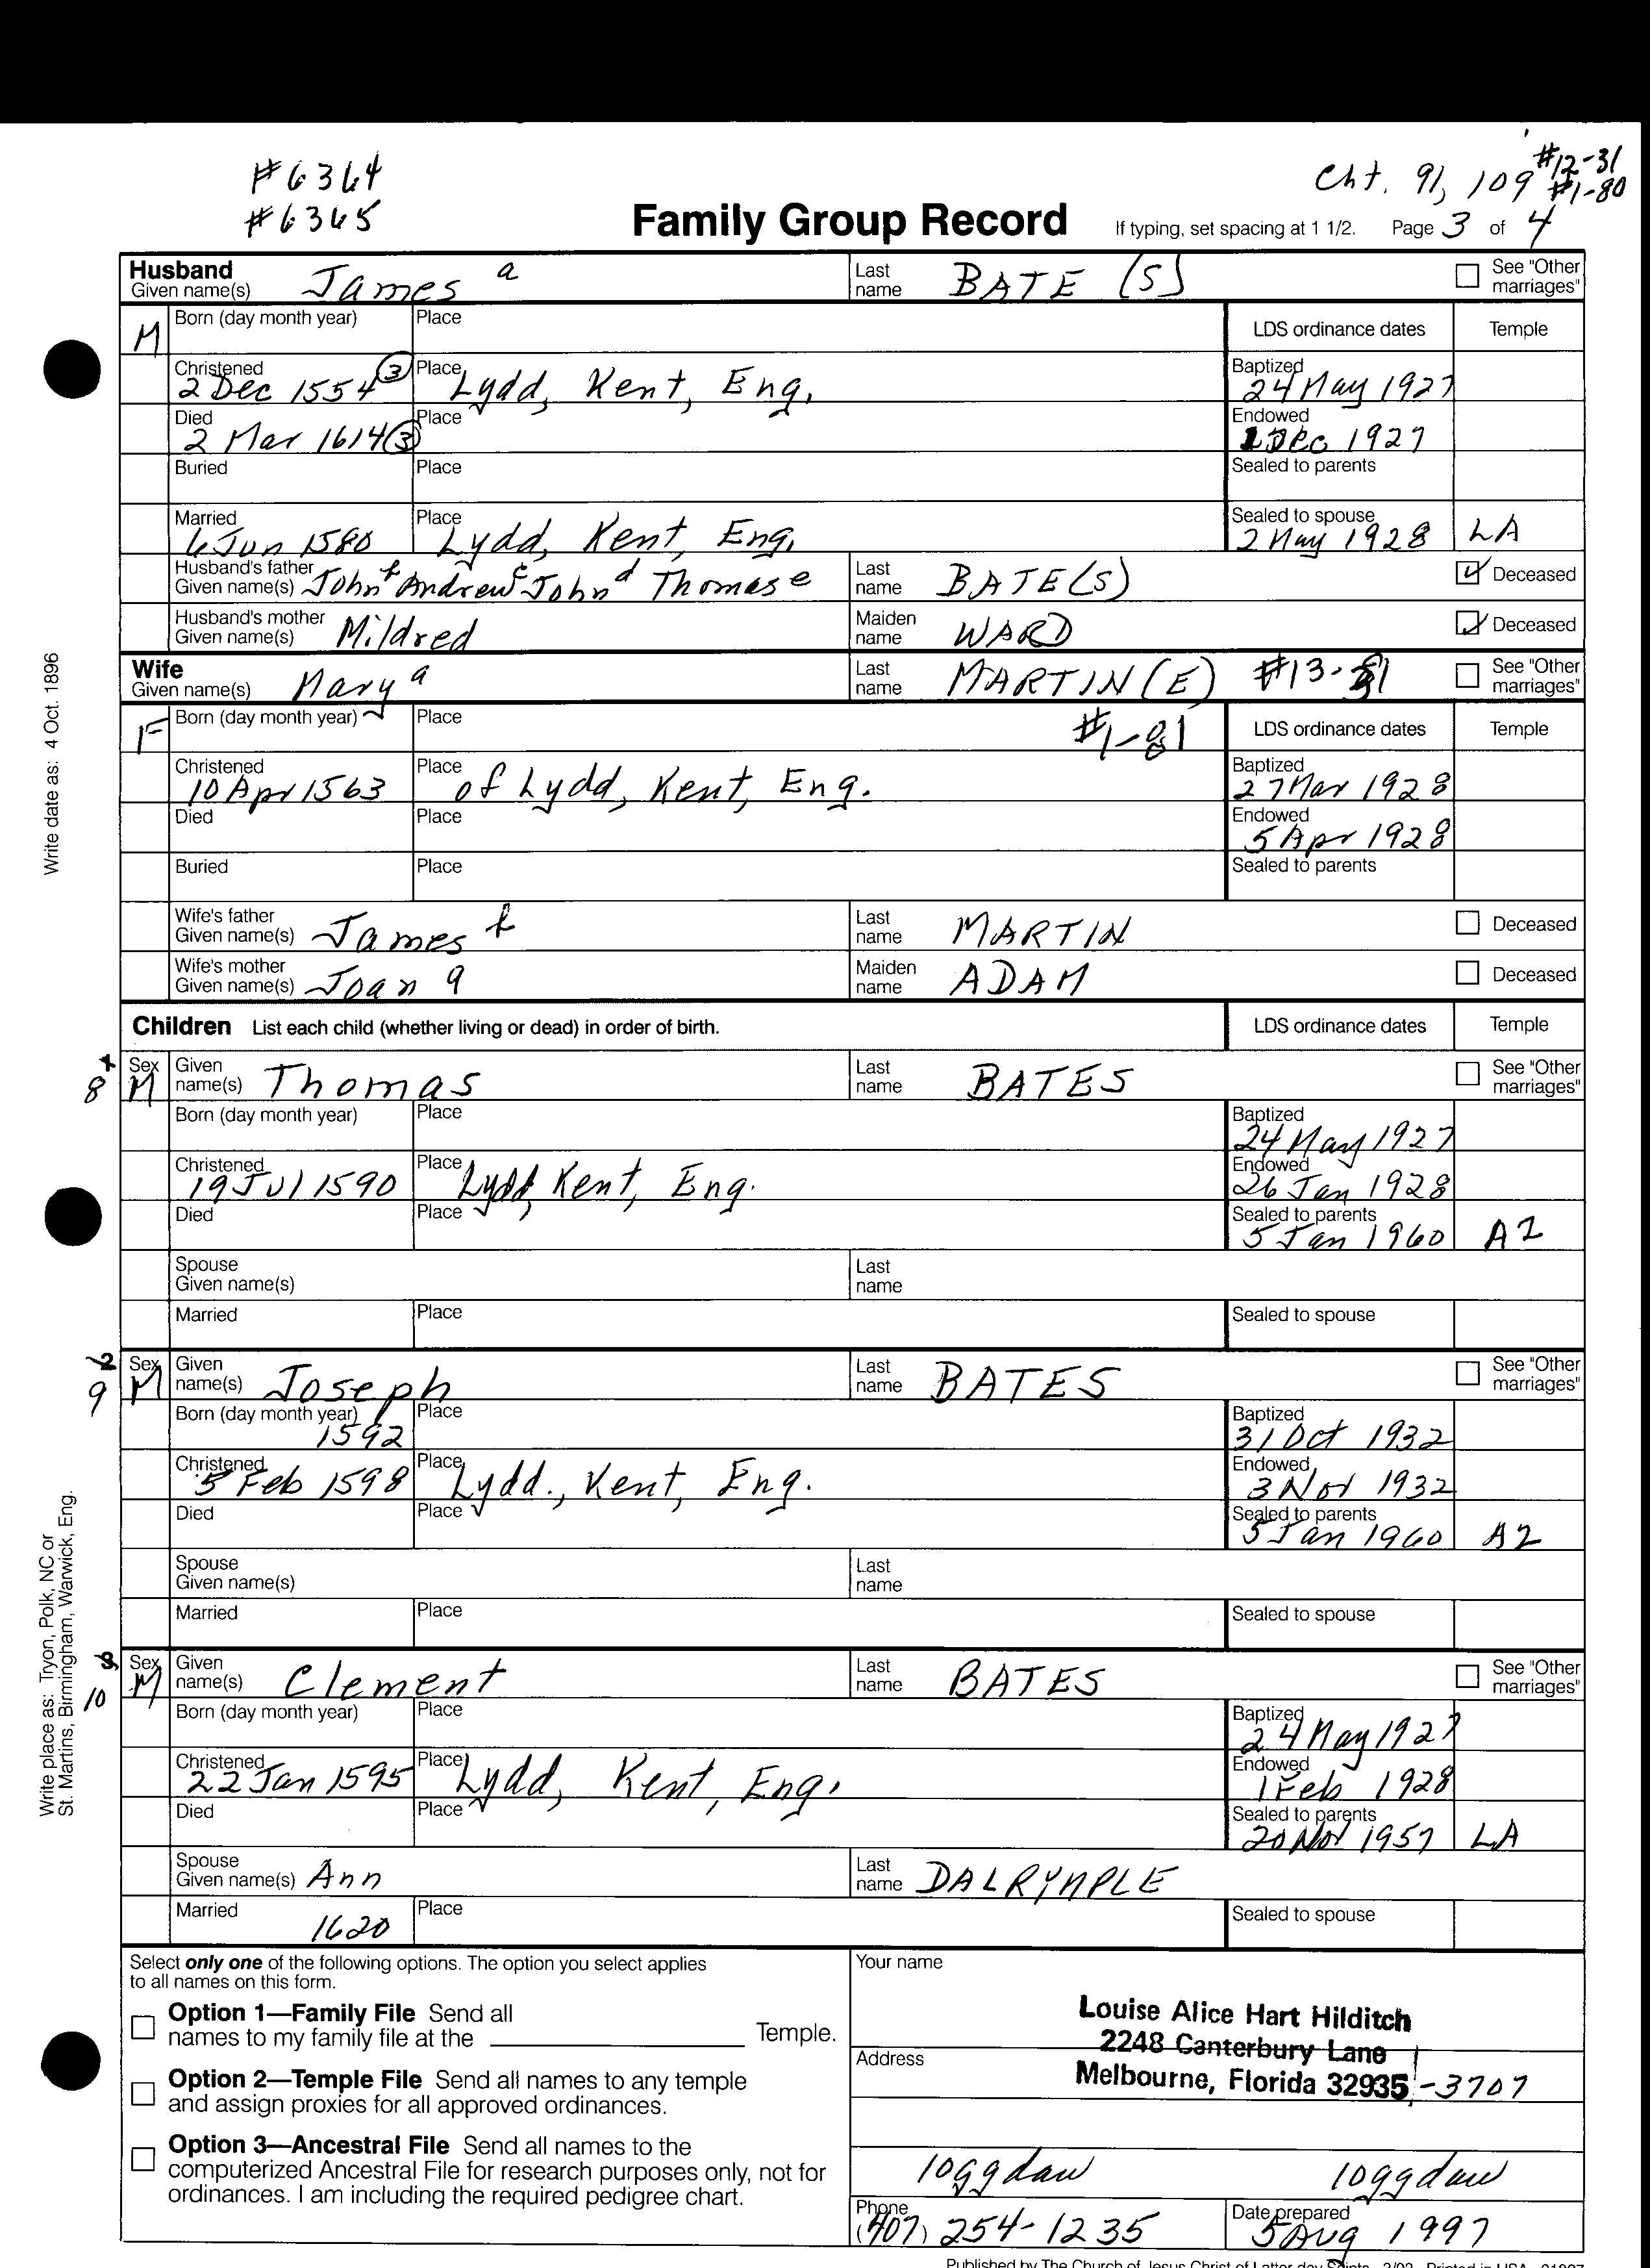 #6364
#6365
Cht. 91, 109 #12-31
#1-80
Family Group Record If typing, set spacing at 1 1/2. Page 3 of 4
Husband
Given name(s) James a Last name BATE (S) See "Other marriages"
M Born (day month year) Place LDS ordinance dates Temple
Christened 2 Dec 1554 (3) Place Lydd, Kent, Eng. Baptized 24 May 1927
Died 2 Mar 1614 (3) Place Endowed 1 Dec 1927
Buried Place Sealed to parents
Married 6 Jun 1580 Place Lydd, Kent, Eng. Sealed to spouse 2 May 1928 LA
Husband's father Given name(s) John Andrew c John d Thomas e Last name BATE(S) Deceased
Husband's mother Given name(s) Mildred Maiden name WARD Deceased
Wife
Given name(s) Mary a Last name MARTIN(E) #13-81 See "Other marriages"
F Born (day month year) Place #1-81 LDS ordinance dates Temple
Christened 10 Apr 1563 Place of Lydd, Kent, Eng. Baptized 27 Mar 1928
Died Place Endowed 5 Apr 1928
Buried Place Sealed to parents
Wife's father Given name(s) James Last name MARTIN Deceased
Wife's mother Given name(s) Joan Maiden name ADAM Deceased
Children List each child (whether living or dead) in order of birth. LDS ordinance dates Temple
8 Sex M Given name(s) Thomas Last name BATES See "Other marriages"
Born (day month year) Place Baptized 24 May 1927
Christened 19 Jul 1590 Place Lydd, Kent, Eng. Endowed 26 Jan 1928
Died Place Sealed to parents 5 Jan 1960 AZ
Spouse Given name(s) Last name
Married Place Sealed to spouse
2 9 Sex M Given name(s) Joseph Last name BATES See "Other marriages"
Born (day month year) 1592 Place Baptized 31 Oct 1932
Christened 5 Feb 1598 Place Lydd., Kent, Eng. Endowed 3 Nov 1932
Died Place Sealed to parents 5 Jan 1960 AZ
Spouse Given name(s) Last name
Married Place Sealed to spouse
3 10 Sex M Given name(s) Clement Last name BATES See "Other marriages"
Born (day month year) Place Baptized 24 May 1927
Christened 22 Jan 1595 Place Lydd, Kent, Eng. Endowed 1 Feb 1928
Died Place Sealed to parents 20 Nov 1957 LA
Spouse Given name(s) Ann Last name DALRYMPLE
Married 1620 Place Sealed to spouse
Select only one of the following options. The option you select applies
to all names on this form.
Option 1—Family File Send all
names to my family file at the Temple.
Option 2—Temple File Send all names to any temple
and assign proxies for all approved ordinances.
Option 3—Ancestral File Send all names to the
computerized Ancestral File for research purposes only, not for
ordinances. I am including the required pedigree chart.
Your name
Louise Alice Hart Hilditch
2248 Canterbury Lane
Address
Melbourne, Florida 32935-3707
Phone (407) 254-1235 Date prepared 5 Aug 1997
Published by The Church of Jesus Christ of Latter-day Saints
Write date as: 4 Oct. 1896
Write place as: Tryon, Polk, NC or
St. Martins, Birmingham, Warwick, Eng.